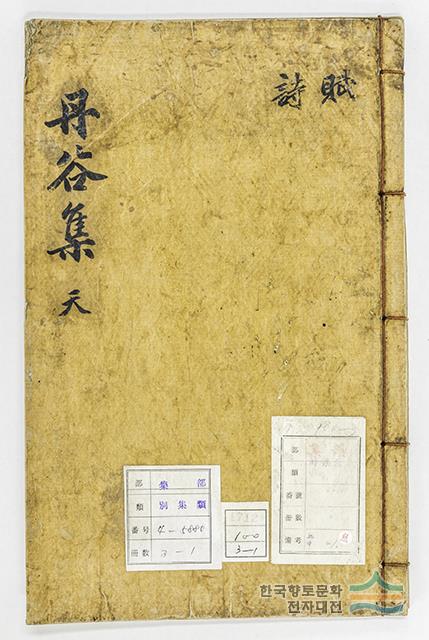 丹谷集 天
賦
詩
部 集 部
類 別集類
番号 4-5685
冊数 3-1
1712
100
3-1
部
類
番號
冊數
備考
한국향토문화
전자대전